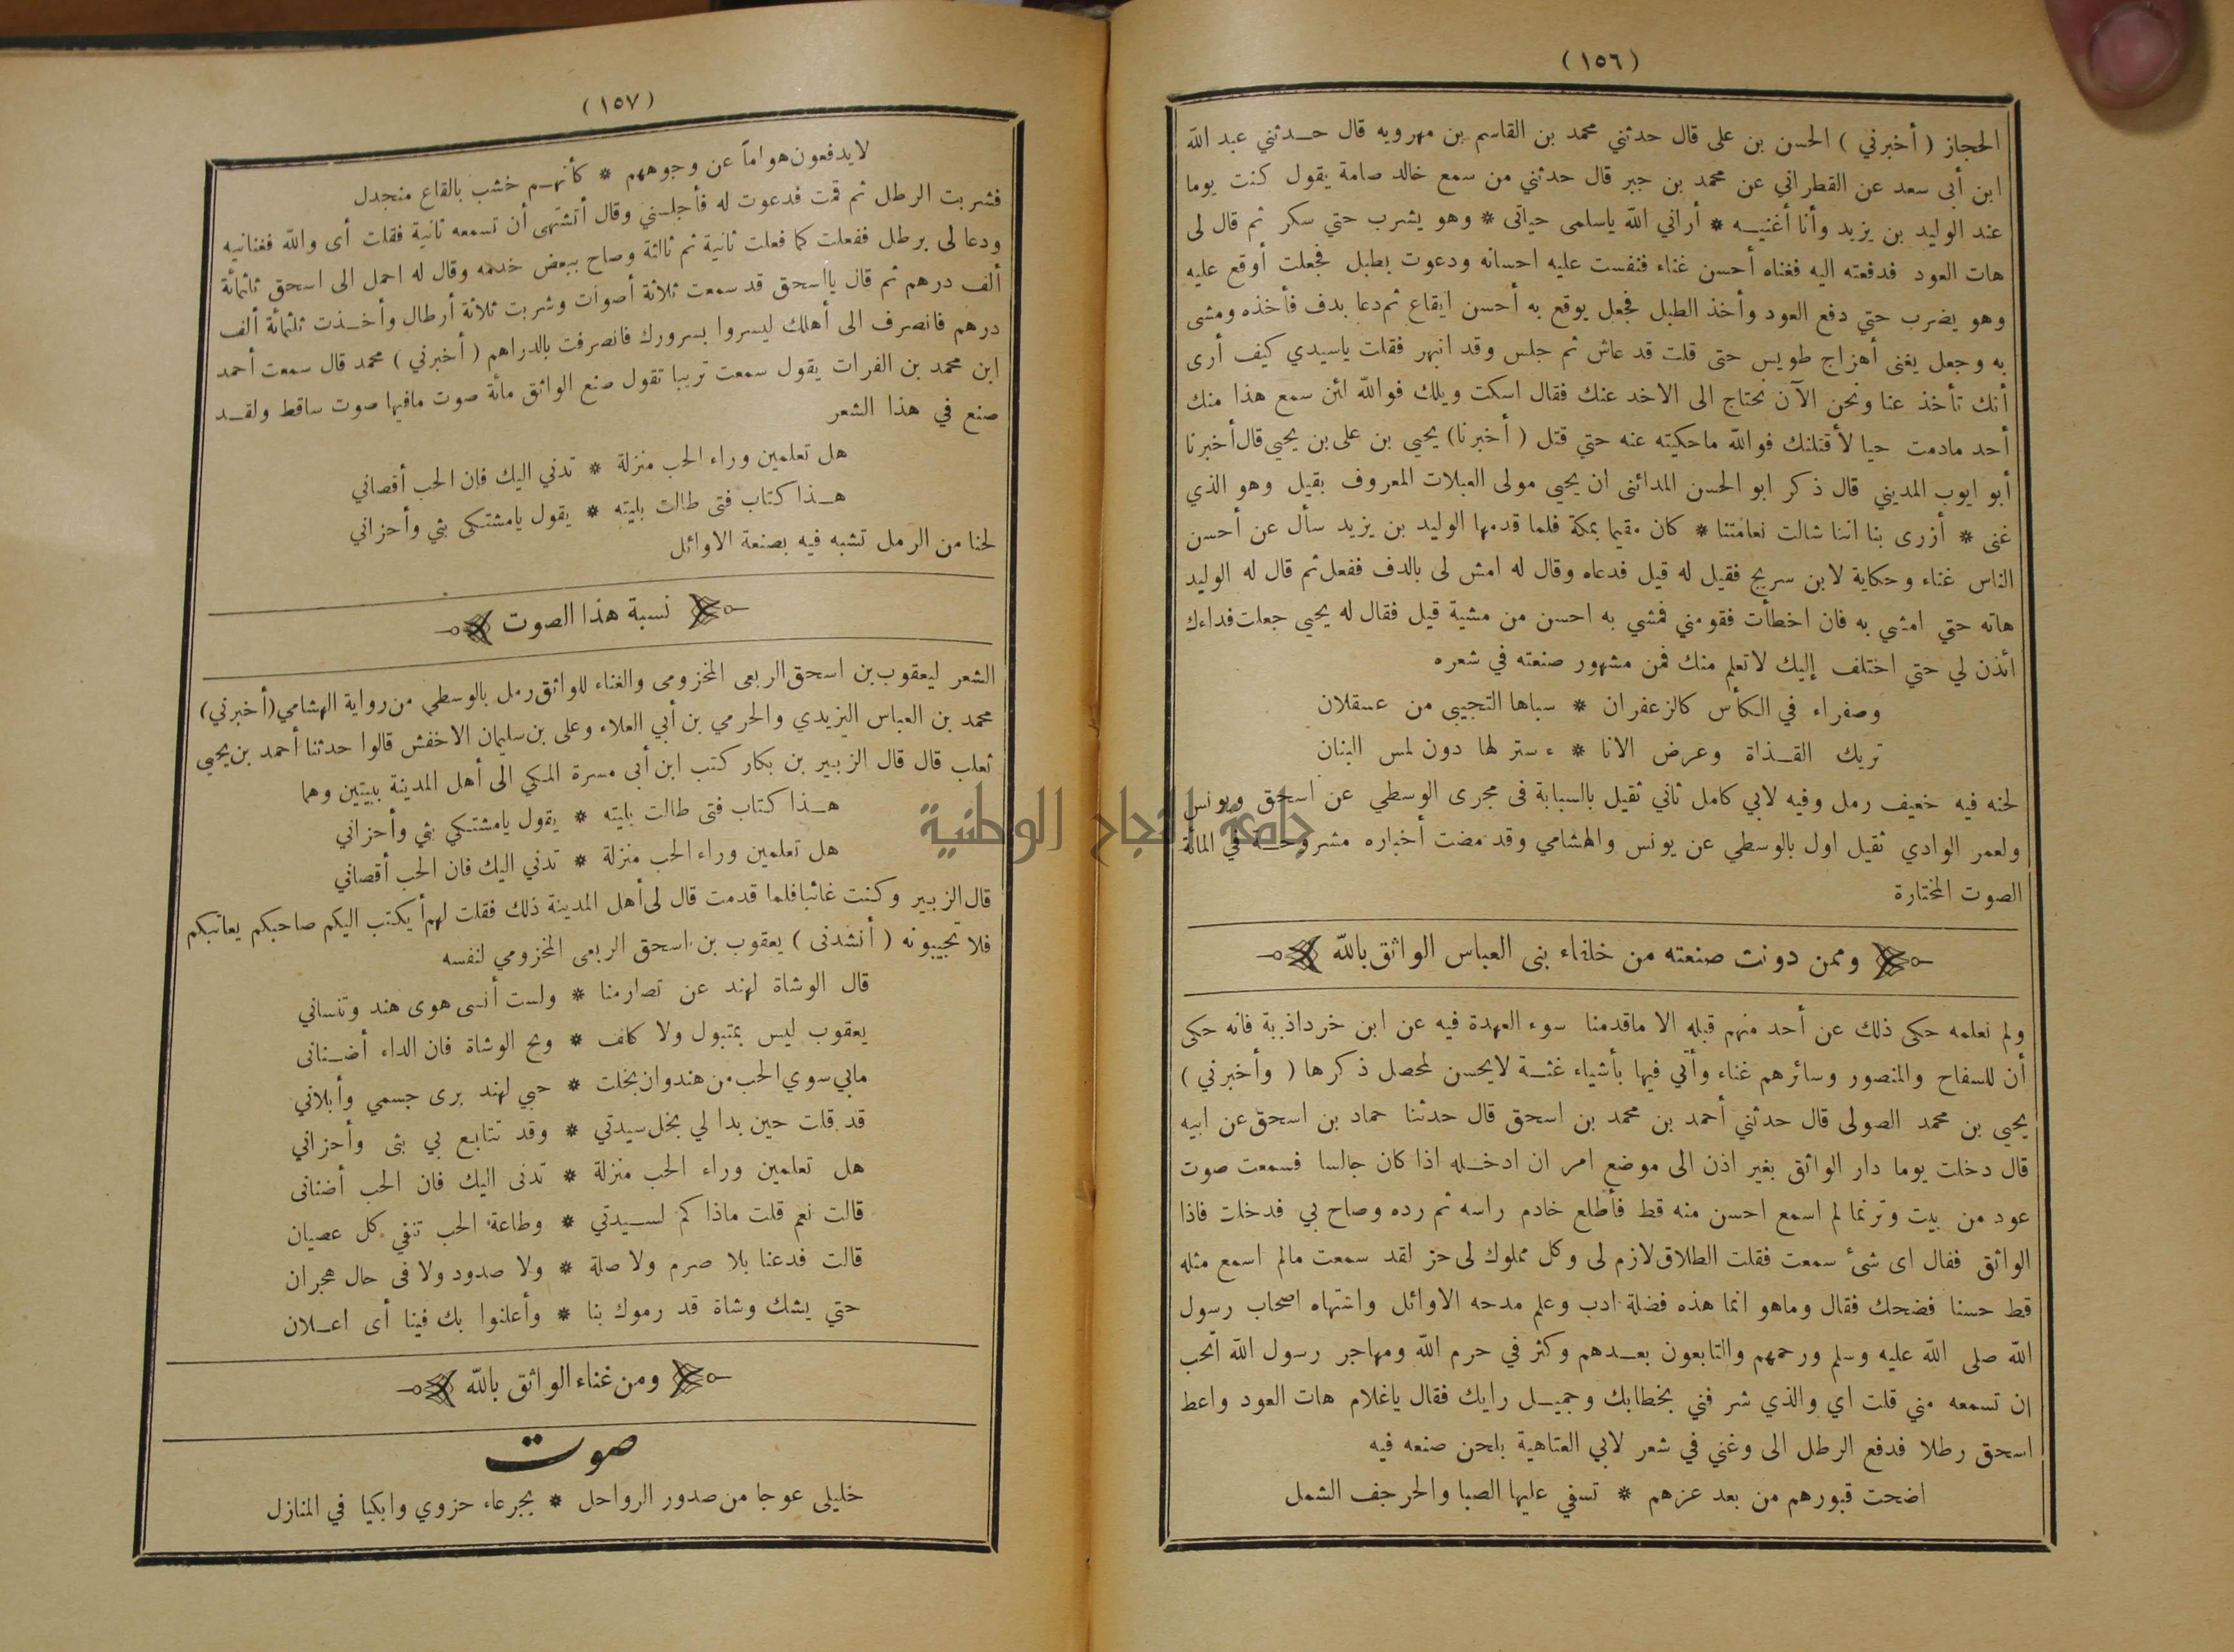 (١٥٦)
الحجاز ( أخبرني ) الحسن بن على قال حدثني محمد بن القاسم بن مهرويه قال حـدثني عبد الله
ابن أبى سعد عن القطراني عن محمد بن جبر قال حدثني من سمع خالد صامة يقول كنت يوما
عند الوليد بن يزيد وأنا أغنيـه * أراني الله ياسلمى حياتى * وهو يشرب حتي سكر ثم قال لى
هات العود فدفعته اليه فغناه أحسن غناء فنفست عليه احسانه ودعوت بطبل فجعلت أوقع عليه
وهو يضرب حتي دفع العود وأخذ الطبل فجعل يوقع به أحسن ايقاع ثم دعا بدف فأخذه ومشى
به وجعل يغنى أهزاج طويس حتى قلت قد عاش ثم جلس وقد انبهر فقلت ياسيدي كيف أرى
أنك تأخذ عنا ونحن الآن نحتاج الى الاخد عنك فقال اسكت ويلك فوالله لئن سمع هذا منك
أحد مادمت حيا لأقتلنك فوالله ماحكيته عنه حتي قتل ( أخبرنا ) يحيى بن على بن يحيى قال أخبرنا
أبو ايوب المديني قال ذكر ابو الحسن المدائنى ان يحيى مولى العبلات المعروف بقيل وهو الذي
غنى * أزرى بنا اننا شالت نعامتنا * كان مقيما بمكة فلما قدمها الوليد بن يزيد سأل عن أحسن
الناس غناء وحكاية لابن سريج فقيل له قيل فدعاه وقال له امش لى بالدف ففعل ثم قال له الوليد
هاته حتي امشي به فان اخطأت فقومني فمشي به احسن من مشية قيل فقال له يحيى جعلت فداءك
ائذن لي حتي اختلف إليك لاتعلم منك فمن مشهور صنعته في شعره
وصفراء في الكأس كالزعفران * سباها التجيبى من عسقلان
تريك القـذاة وعرض الانا * ء ستر لها دون لمس البنان
لحنه فيه خفيف رمل وفيه لابي كامل ثاني ثقيل بالسبابة فى مجرى الوسطي عن اسحق ويونس
ولعمر الوادي ثقيل اول بالوسطي عن يونس والهشامي وقد مضت أخباره مشروحـة في المائة
الصوت المختارة
وممن دونت صنعته من خلفاء بنى العباس الواثق بالله
ولم نعلمه حكى ذلك عن أحد منهم قبله الا ماقدمنا سوء العهدة فيه عن ابن خرداذبة فانه حكى
أن للسفاح والمنصور وسائرهم غناء وأتي فيها بأشياء غثـة لايحسن لمحصل ذكرها ( وأخبرني )
يحيى بن محمد الصولى قال حدثني أحمد بن محمد بن اسحق قال حدثنا حماد بن اسحق عن ابيه
قال دخلت يوما دار الواثق بغير اذن الى موضع امر ان ادخـله اذا كان جالسا فسمعت صوت
عود من بيت وترنما لم اسمع احسن منه قط فأطلع خادم راسه ثم رده وصاح بي فدخلت فاذا
الواثق فقال اى شئ سمعت فقلت الطلاق لازم لى وكل مملوك لى حز لقد سمعت مالم اسمع مثله
قط حسنا فضحك فقال وماهو انما هذه فضلة ادب وعلم مدحه الاوائل واشتهاه اصحاب رسول
الله صلى الله عليه وسلم ورحمهم والتابعون بعـدهم وكثر في حرم الله ومهاجر رسول الله اتحب
ان تسمعه مني قلت اي والذي شرفني بخطابك وجميـل رايك فقال ياغلام هات العود واعط
اسحق رطلا فدفع الرطل الى وغني في شعر لابي العتاهية بلحن صنعه فيه
اضحت قبورهم من بعد عزهم * تسفي عليها الصبا والحرجف الشمل
(١٥٧)
لايدفعون هواماً عن وجوههم * كأنهـم خشب بالقاع منجدل
فشربت الرطل ثم قمت فدعوت له فأجلسني وقال أتشتهى أن تسمعه ثانية فقلت أى والله فغنانيه
ودعا لى برطل ففعلت كما فعلت ثانية ثم ثالثة وصاح ببعض خدمه وقال له احمل الى اسحق ثلثمائة
ألف درهم ثم قال يااسحق قد سمعت ثلاثة أصوات وشربت ثلاثة أرطال وأخـذت ثلثمائة ألف
درهم فانصرف الى أهلك ليسروا بسرورك فانصرفت بالدراهم ( أخبرني ) محمد قال سمعت أحمد
ابن محمد بن الفرات يقول سمعت تريبا تقول صنع الواثق مائة صوت مافيها صوت ساقط ولقـد
صنع في هذا الشعر
هل تعلمين وراء الحب منزلة * تدني اليك فإن الحب أقصاني
هـذا كتاب فتى طالت بليته * يقول يامشتكى بثي وأحزاني
لحنا من الرمل تشبه فيه بصنعة الاوائل
نسبة هذا الصوت
الشعر ليعقوب بن اسحق الربعى المخزومى والغناء للواثق رمل بالوسطي من رواية الهشامي (أخبرني)
محمد بن العباس اليزيدي والحرمي بن أبي العلاء وعلى بن سليمان الاخفش قالوا حدثنا أحمد بن يحيى
ثعلب قال قال الزبير بن بكار كتب ابن أبى مسرة المكي الى أهل المدينة ببيتين وهما
هـذا كتاب فتى طالت بليته * يقول يامشتكي بثي وأحزاني
هل تعلمين وراء الحب منزلة * تدني اليك فان الحب أقصاني
قال الزبير وكنت غائبا فلما قدمت قال لى أهل المدينة ذلك فقلت لهم أيكتب اليكم صاحبكم يعاتبكم
فلا تجيبونه ( أنشدنى ) يعقوب بن اسحق الربعى المخزومي لنفسه
قال الوشاة لهند عن تصارمنا * ولست أنسى هوى هند وتنساني
يعقوب ليس بمتبول ولا كلف * ويح الوشاة فان الداء أضـنانى
مابي سوي الحب من هند وان بخلت * حبي لهند برى جسمي وأبلاني
قد قلت حين بدا لي بخل سيدتي * وقد تتابع بي بثى وأحزاني
هل تعلمين وراء الحب منزلة * تدنى اليك فان الحب أضنانى
قالت نعم قلت ماذا كم لسـيدتي * وطاعة الحب تنفي كل عصيان
قالت فدعنا بلا صرم ولا صلة * ولا صدود ولا فى حال هجران
حتي يشك وشاة قد رموك بنا * وأعلنوا بك فينا أى اعـلان
ومن غناء الواثق بالله
صوت
خليلى عوجا من صدور الرواحل * بجرعاء حزوي وابكيا في المنازل
جامعة النجاح الوطنية